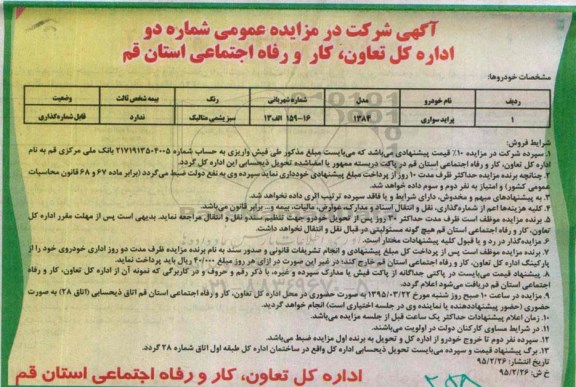 آگهی شرکت در مزایده عمومی شماره دو
اداره کل تعاون، کار و رفاه اجتماعی استان قم
مشخصات خودروها:
ردیف نام خودرو مدل شماره شهربانی رنگ بیمه شخص ثالث وضعیت
۱ پراید سواری ۱۳۸۴ ۱۶-۱۵۹ الف ۱۳ سبز یشمی متالیک ندارد قابل شماره‌گذاری
شرایط فروش:
۱. سپرده شرکت در مزایده ۱۰٪ قیمت پیشنهادی می‌باشد که می‌بایست مبلغ مذکور طی فیش واریزی به حساب شماره ۲۱۷۱۹۱۳۵۰۴۰۰۵ بانک ملی مرکزی قم به نام
اداره کل تعاون، کار و رفاه اجتماعی استان قم در پاکت دربسته ممهور یا امضاشده تحویل ذیحسابی این اداره کل گردد.
۲. چنانچه برنده مزایده حداکثر ظرف مدت ۱۰ روز از پرداخت مبلغ پیشنهادی خودداری نماید سپرده وی به نفع دولت ضبط می‌گردد (برابر ماده ۶۷ و ۶۸ قانون محاسبات
عمومی کشور) و امتیاز به نفر دوم و سوم داده خواهد شد.
۳. به پیشنهادهای مبهم و مخدوش، دارای شرایط و یا فاقد سپرده ترتیب اثری داده نخواهد شد.
۴. کلیه هزینه‌ها اعم از شماره‌گذاری، نقل و انتقال اسناد و مدارک، عوارض، مالیات، بیمه و... برابر قانون می‌باشد.
۵. برنده مزایده موظف است ظرف مدت حداکثر ۳۰ روز پس از تحویل خودرو جهت تنظیم سند و نقل و انتقال مراجعه نماید. بدیهی است پس از مهلت مقرر اداره کل
تعاون، کار و رفاه اجتماعی استان قم هیچ گونه مسئولیتی در قبال نقل و انتقال نخواهد داشت.
۶. مزایده‌گذار در رد و یا قبول کلیه پیشنهادات مختار است.
۷. برنده مزایده موظف است پس از پرداخت کل مبلغ پیشنهادی و انجام تشریفات قانونی و صدور سند به نام برنده مزایده ظرف مدت دو روز اداری خودروی خود را از
پارکینگ اداره کل تعاون، کار و رفاه اجتماعی استان قم خارج کند؛ در غیر این صورت در ازای هر روز مبلغ ۴۰/۰۰۰ ریال باید پرداخت نماید.
۸. پیشنهاد قیمت می‌بایست در پاکتی جداگانه از پاکت فیش یا مدارک سپرده و غیره، با ذکر رقم و حروف و در کاربرگی که نمونه آن از اداره کل تعاون، کار و رفاه
اجتماعی استان قم دریافت می‌شود اعلام گردد.
۹. مزایده در ساعت ۱۰ صبح روز شنبه مورخ ۱۳۹۵/۰۳/۲۲ به صورت حضوری در محل اداره کل تعاون، کار و رفاه اجتماعی استان قم اتاق ذیحسابی (اتاق ۲۸) به صورت
حضوری (حضور پیشنهاددهنده یا نماینده وی در جلسه اختیاری است) انجام خواهد گردید.
۱۰. زمان اعلام پیشنهادات حداکثر یک ساعت قبل از جلسه مزایده می‌باشد.
۱۱. در شرایط مساوی کارکنان دولت در اولویت می‌باشند.
۱۲. سپرده نفر دوم تا خروج خودرو از اداره کل و تحویل به برنده اول مزایده ضبط می‌باشد.
۱۳. برگ پیشنهاد قیمت و سپرده می‌بایست تحویل ذیحسابی اداره کل واقع در ساختمان اداره کل طبقه اول اتاق شماره ۲۸ گردد.
تاریخ انتشار: ۹۵/۲/۲۶
خ ش: ۹۵/۲/۲۶
اداره کل تعاون، کار و رفاه اجتماعی استان قم